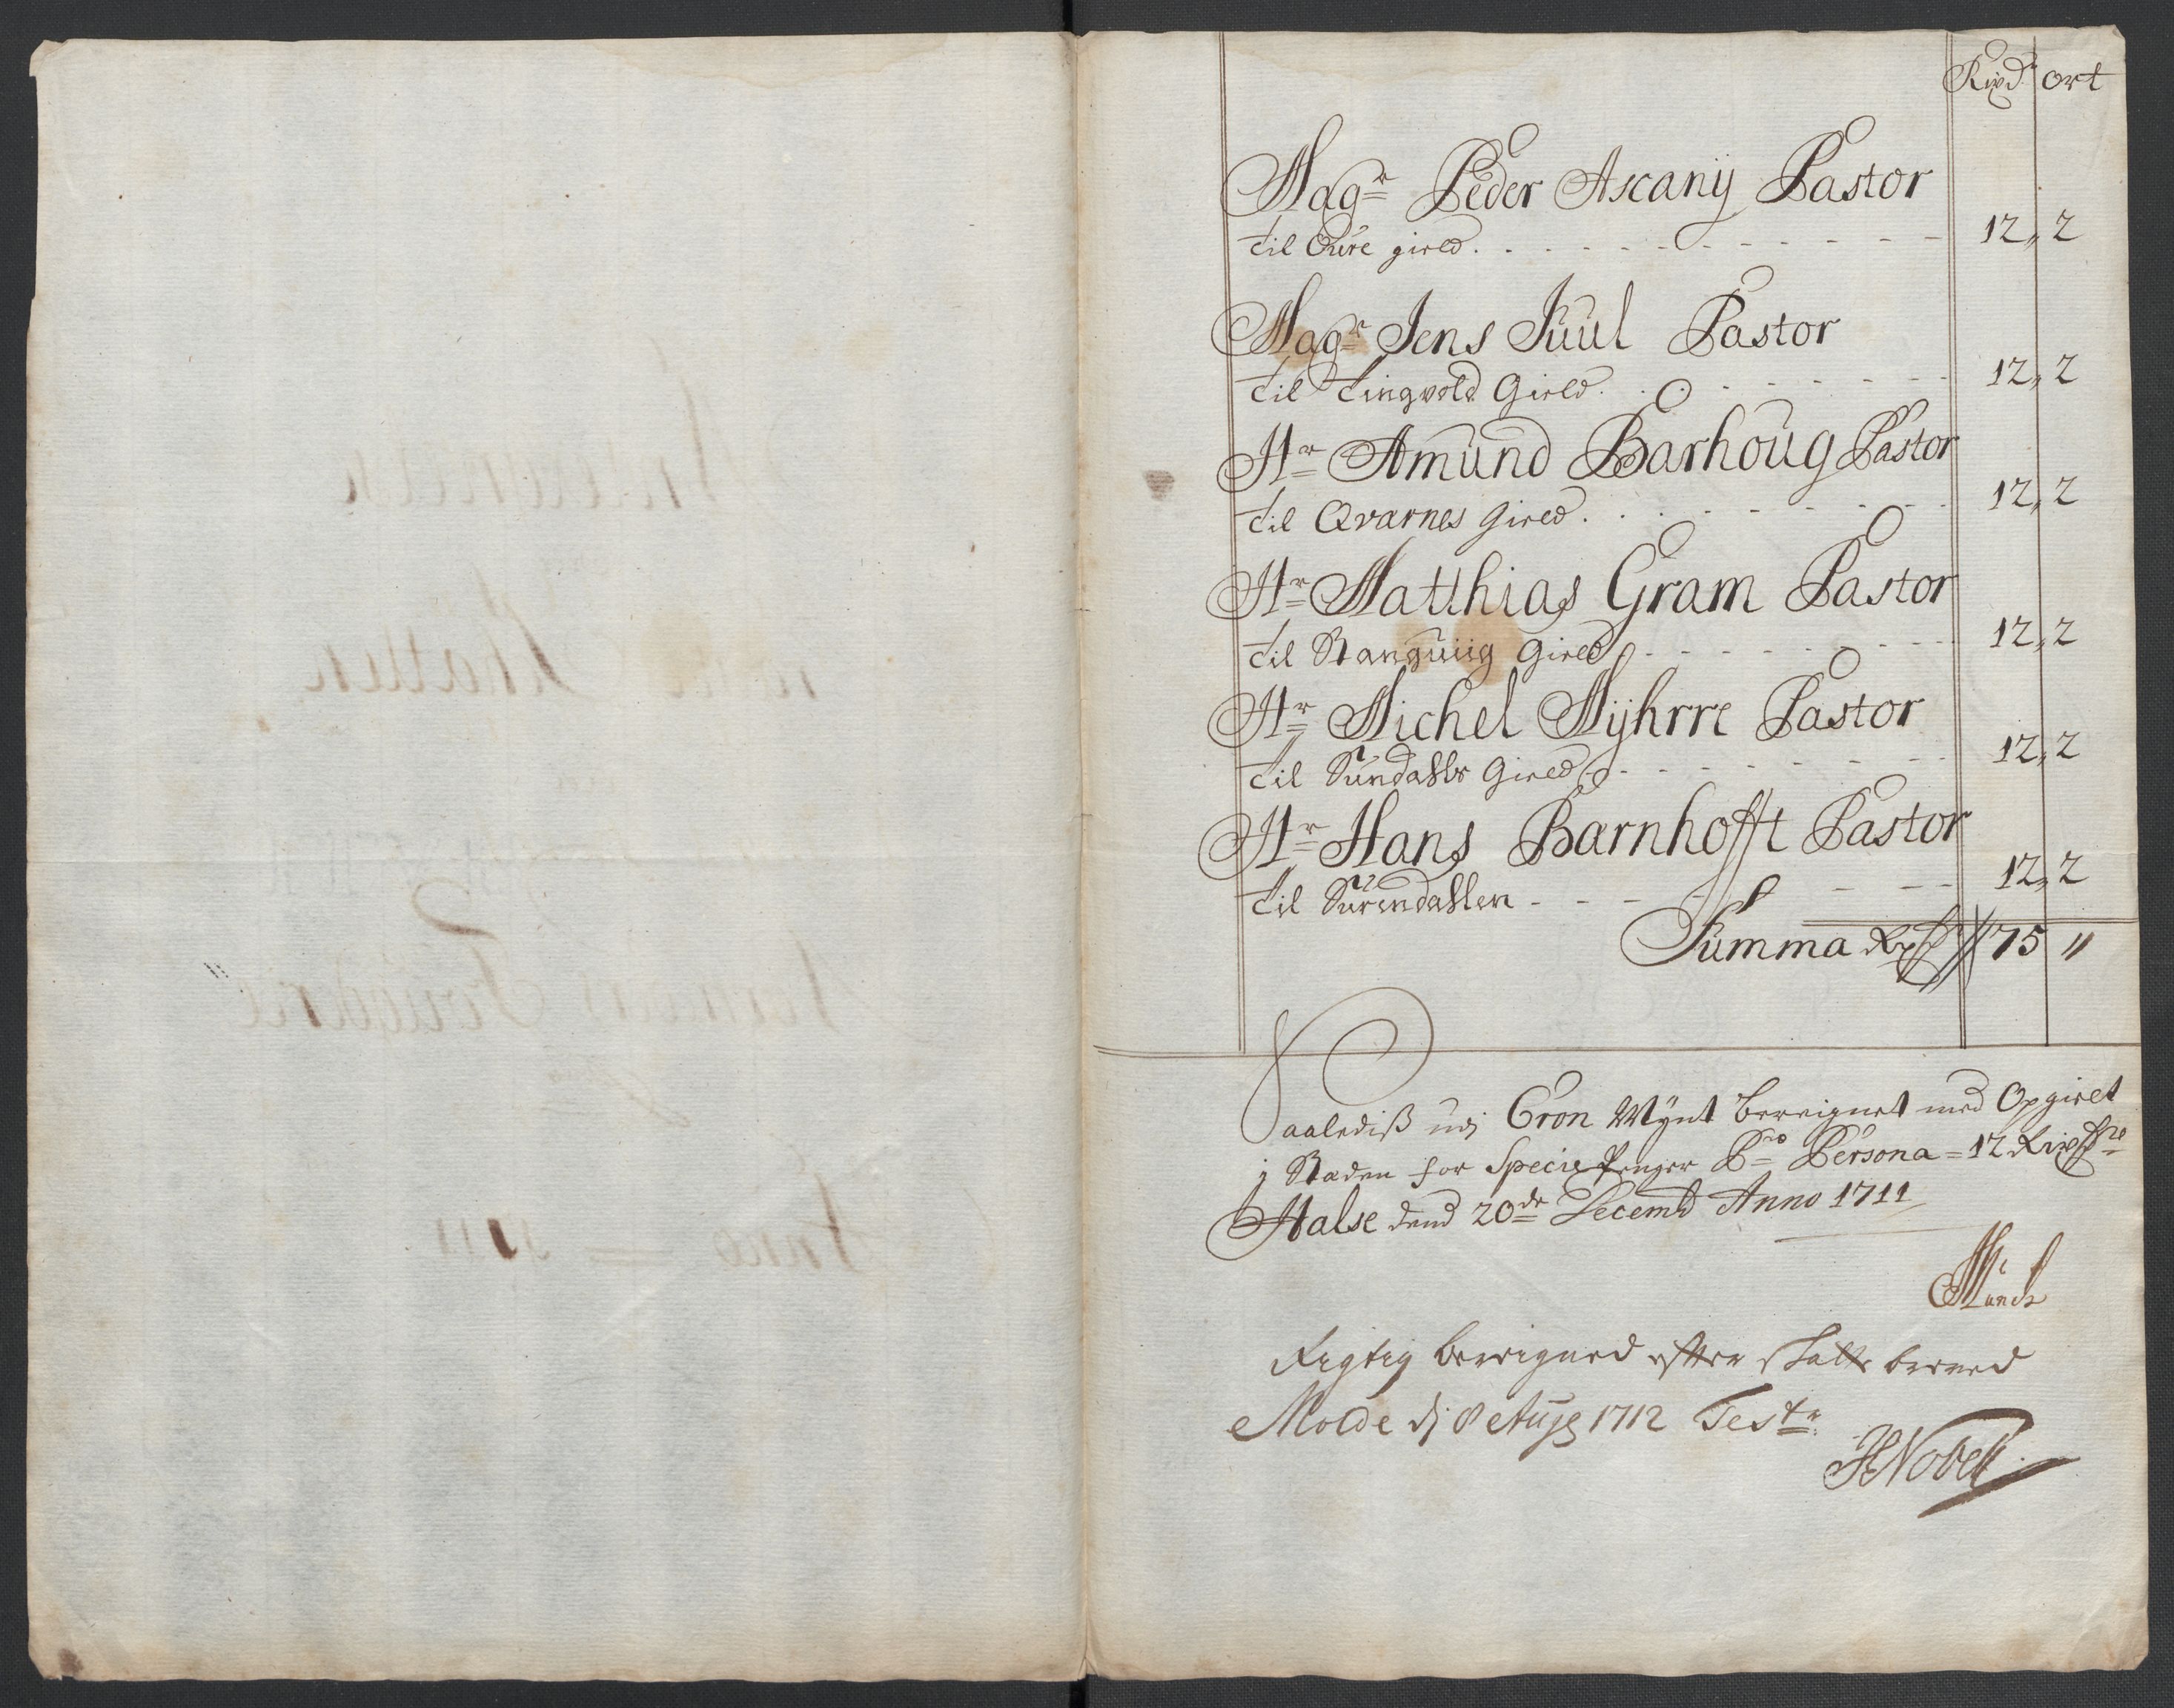 Rixd ort
Magr Peder Ascanij Pastor
til Oure gield 12 „ 2
Magr Jens Juul Pastor
til Tingvold Gield 12 „ 2
Hr Amund Barhoug Pastor
til Qvarnes Gield 12 „ 2
Hr Matthias Gram Pastor
til Stanguiig Gield 12 „ 2
Hr Michel Myhrre Pastor
til Sundahls Gield 12 „ 2
Hr Hans Barnhofft Pastor
til Surendahlen 12 „ 2
Summa 75 „
Saalediß udj Cron Mynt bereignet med Opgield
j Staden for Specie Penger Pro Persona = 12
Halse dend 20de Decembr Anno 1711
Munch
Rigtig bereigned efter
Molde dj 8 Aug 1712 Testr
HNobell